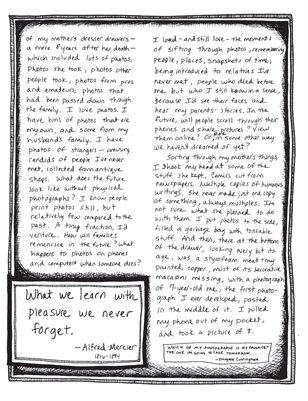 of my mother's dresser drawers –
a mere 8 years after her death –
which included lots of photos.
Photos she took, photos other
people took, photos from pros
and amateurs, photos that
had been passed down through
the family. I love photos. I
have bins of photos that are
my own, and some from my
husband's family. I have
photos of strangers – amusing
candids of people I've never
met, collected from antique
shops. What does the future
look like without physical
photographs? I know people
print photos still, but
relatively few compared to the
past. A tiny fraction, I'd
venture. How will families
reminisce in the future? What
happens to photos on phones
and computers when someone dies?
What we learn with
pleasure we never
forget.
– Alfred Mercier
1816-1894
I loved – and still love – the moments
of sifting through photos, remembering
people, places, snapshots of time;
being introduced to relatives I've
never met, people who died before
me but who I still know in a sense,
because I'd see their faces and
hear my parents' stories. In the
future, will people scroll through their
phones and share pictures? View
them online? Or, in some other way
we haven't dreamed of yet?
Sorting through my mother's things
I shook my head at some of the
stuff she kept. Comics cut from
newspapers. Multiple copies of humorous
writings. She never made just one copy
of something, always multiples. I'm
not sure what she planned to do
with them. I put photos to the side,
filled a garbage bag with tossable
stuff. And then, there at the bottom
of the drawer, looking every bit its
age, was a styrofoam meat tray
painted copper, most of its decorative
macaroni missing, with a photograph
of 9-year-old me, the first photo-
graph I ever developed, pasted
in the middle of it. I pulled
my phone out of my pocket,
and took a picture of it.
WHICH OF MY PHOTOGRAPHS IS MY FAVORITE?
THE ONE I'M GOING TO TAKE TOMORROW.
– Imogen Cunningham